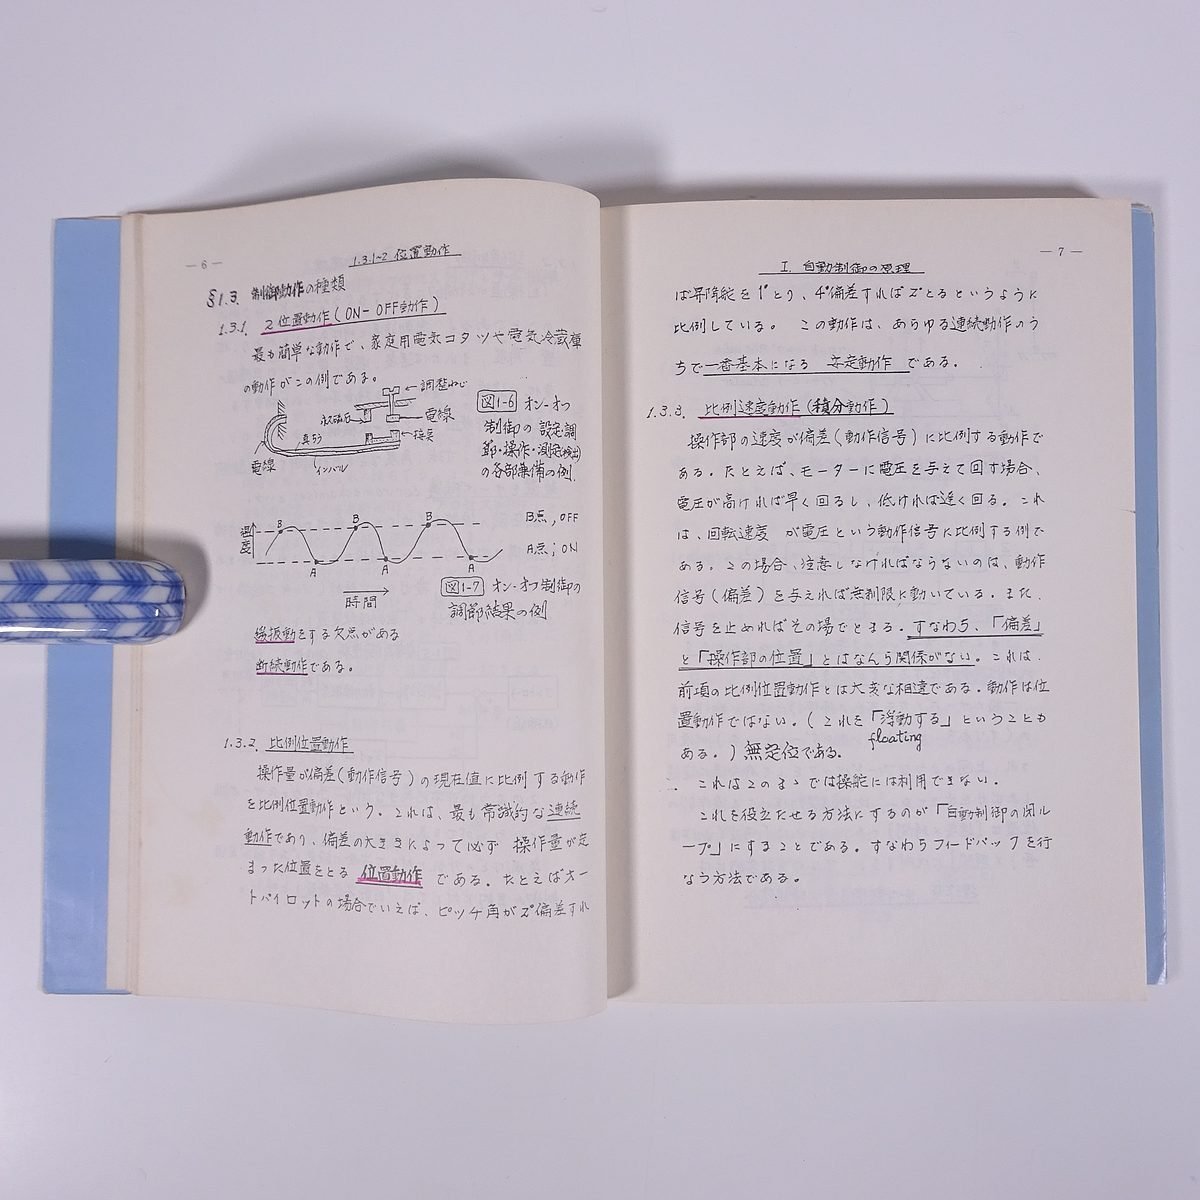 — 6 —
1.3.1~2 位置動作
§1.3. 制御動作の種類
1.3.1. 2位置動作(ON-OFF動作)
最も簡単な動作で、家庭用電気コタツや電気冷蔵庫
の動作がこの例である。
調整ねじ
永磁石
電線
接点
真ちう
電線
インバル
図1-6 オン-オフ
制御の設定・調
節・操作・測定(検出)
の各部兼備の例.
温度
B
B
B
A
A
A
B点,OFF
A点;ON
時間
図1-7 オン-オフ制御の
調節結果の例
振動をする欠点がある
断続動作である。
1.3.2. 比例位置動作
操作量が偏差(動作信号)の現在値に比例する動作
を比例位置動作という。これは、最も常識的な連続
動作であり、偏差の大きさによって必ず 操作量が定
まった位置をとる 位置動作 である。たとえばオー
トパイロットの場合でいえば、ピッチ角が2°偏差すれ
— 7 —
I. 自動制御の原理
ば昇降舵を1°とり、4°偏差すれば2°とるというように
比例している。 この動作は、あらゆる連続動作のう
ちで一番基本になる 安定動作 である。
1.3.3. 比例速度動作(積分動作)
操作部の速度が偏差(動作信号)に比例する動作で
ある。たとえば、モーターに電圧を与えて回す場合、
電圧が高ければ早く回るし、低ければ遅く回る。これ
は、回転速度 が電圧という動作信号に比例する例で
ある。この場合、注意しなければならないのは、動作
信号(偏差)を与えれば無制限に動いている。また、
信号を止めればその場でとまる。すなわち、「偏差」
と「操作部の位置」とはなんら関係がない。これは、
前項の比例位置動作とは大変な相違である。動作は位
置動作ではない。(これを「浮動する」ということも
floating
ある。)無定位である.
これはこのままでは操舵には利用できない.
これを役立たせる方法にするのが「自動制御の閉ル
ープ」にすることである。すなわちフィードバックを行
なう方法である。